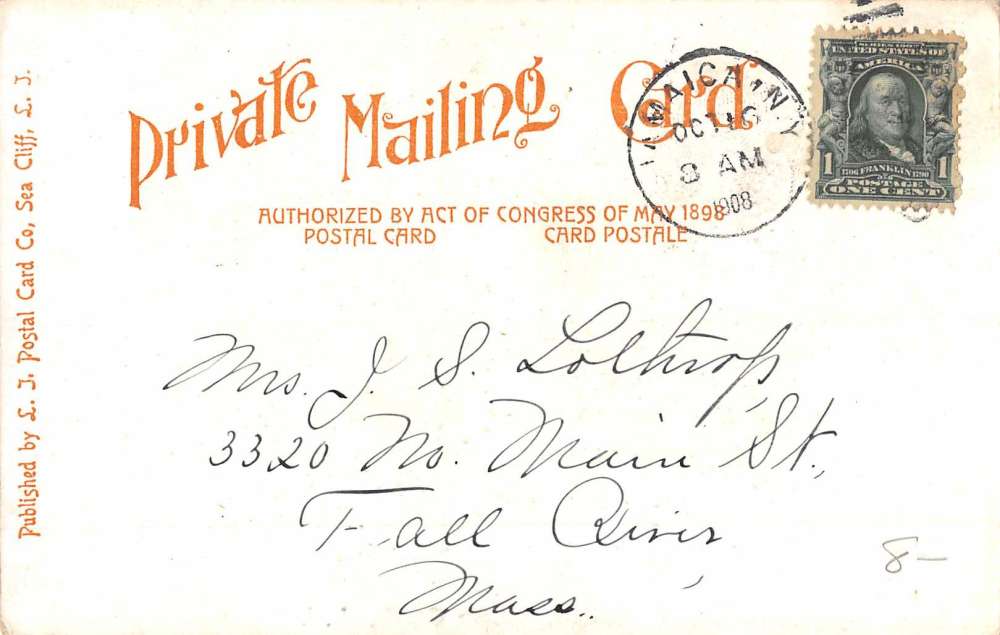 Private Mailing Card
AUTHORIZED BY ACT OF CONGRESS OF MAY 1898
POSTAL CARD CARD POSTALE
Published by L. I. Postal Card Co, Sea Cliff, L. I.
JAMAICA, N.Y.
OCT 16
8 AM
1908
SERIES 1902
UNITED STATES OF
AMERICA
1 1
1706 FRANKLIN 1790
POSTAGE
ONE CENT
Mrs. J. S. Lothrop,
3320 No. Main St.,
Fall River
Mass.
8-